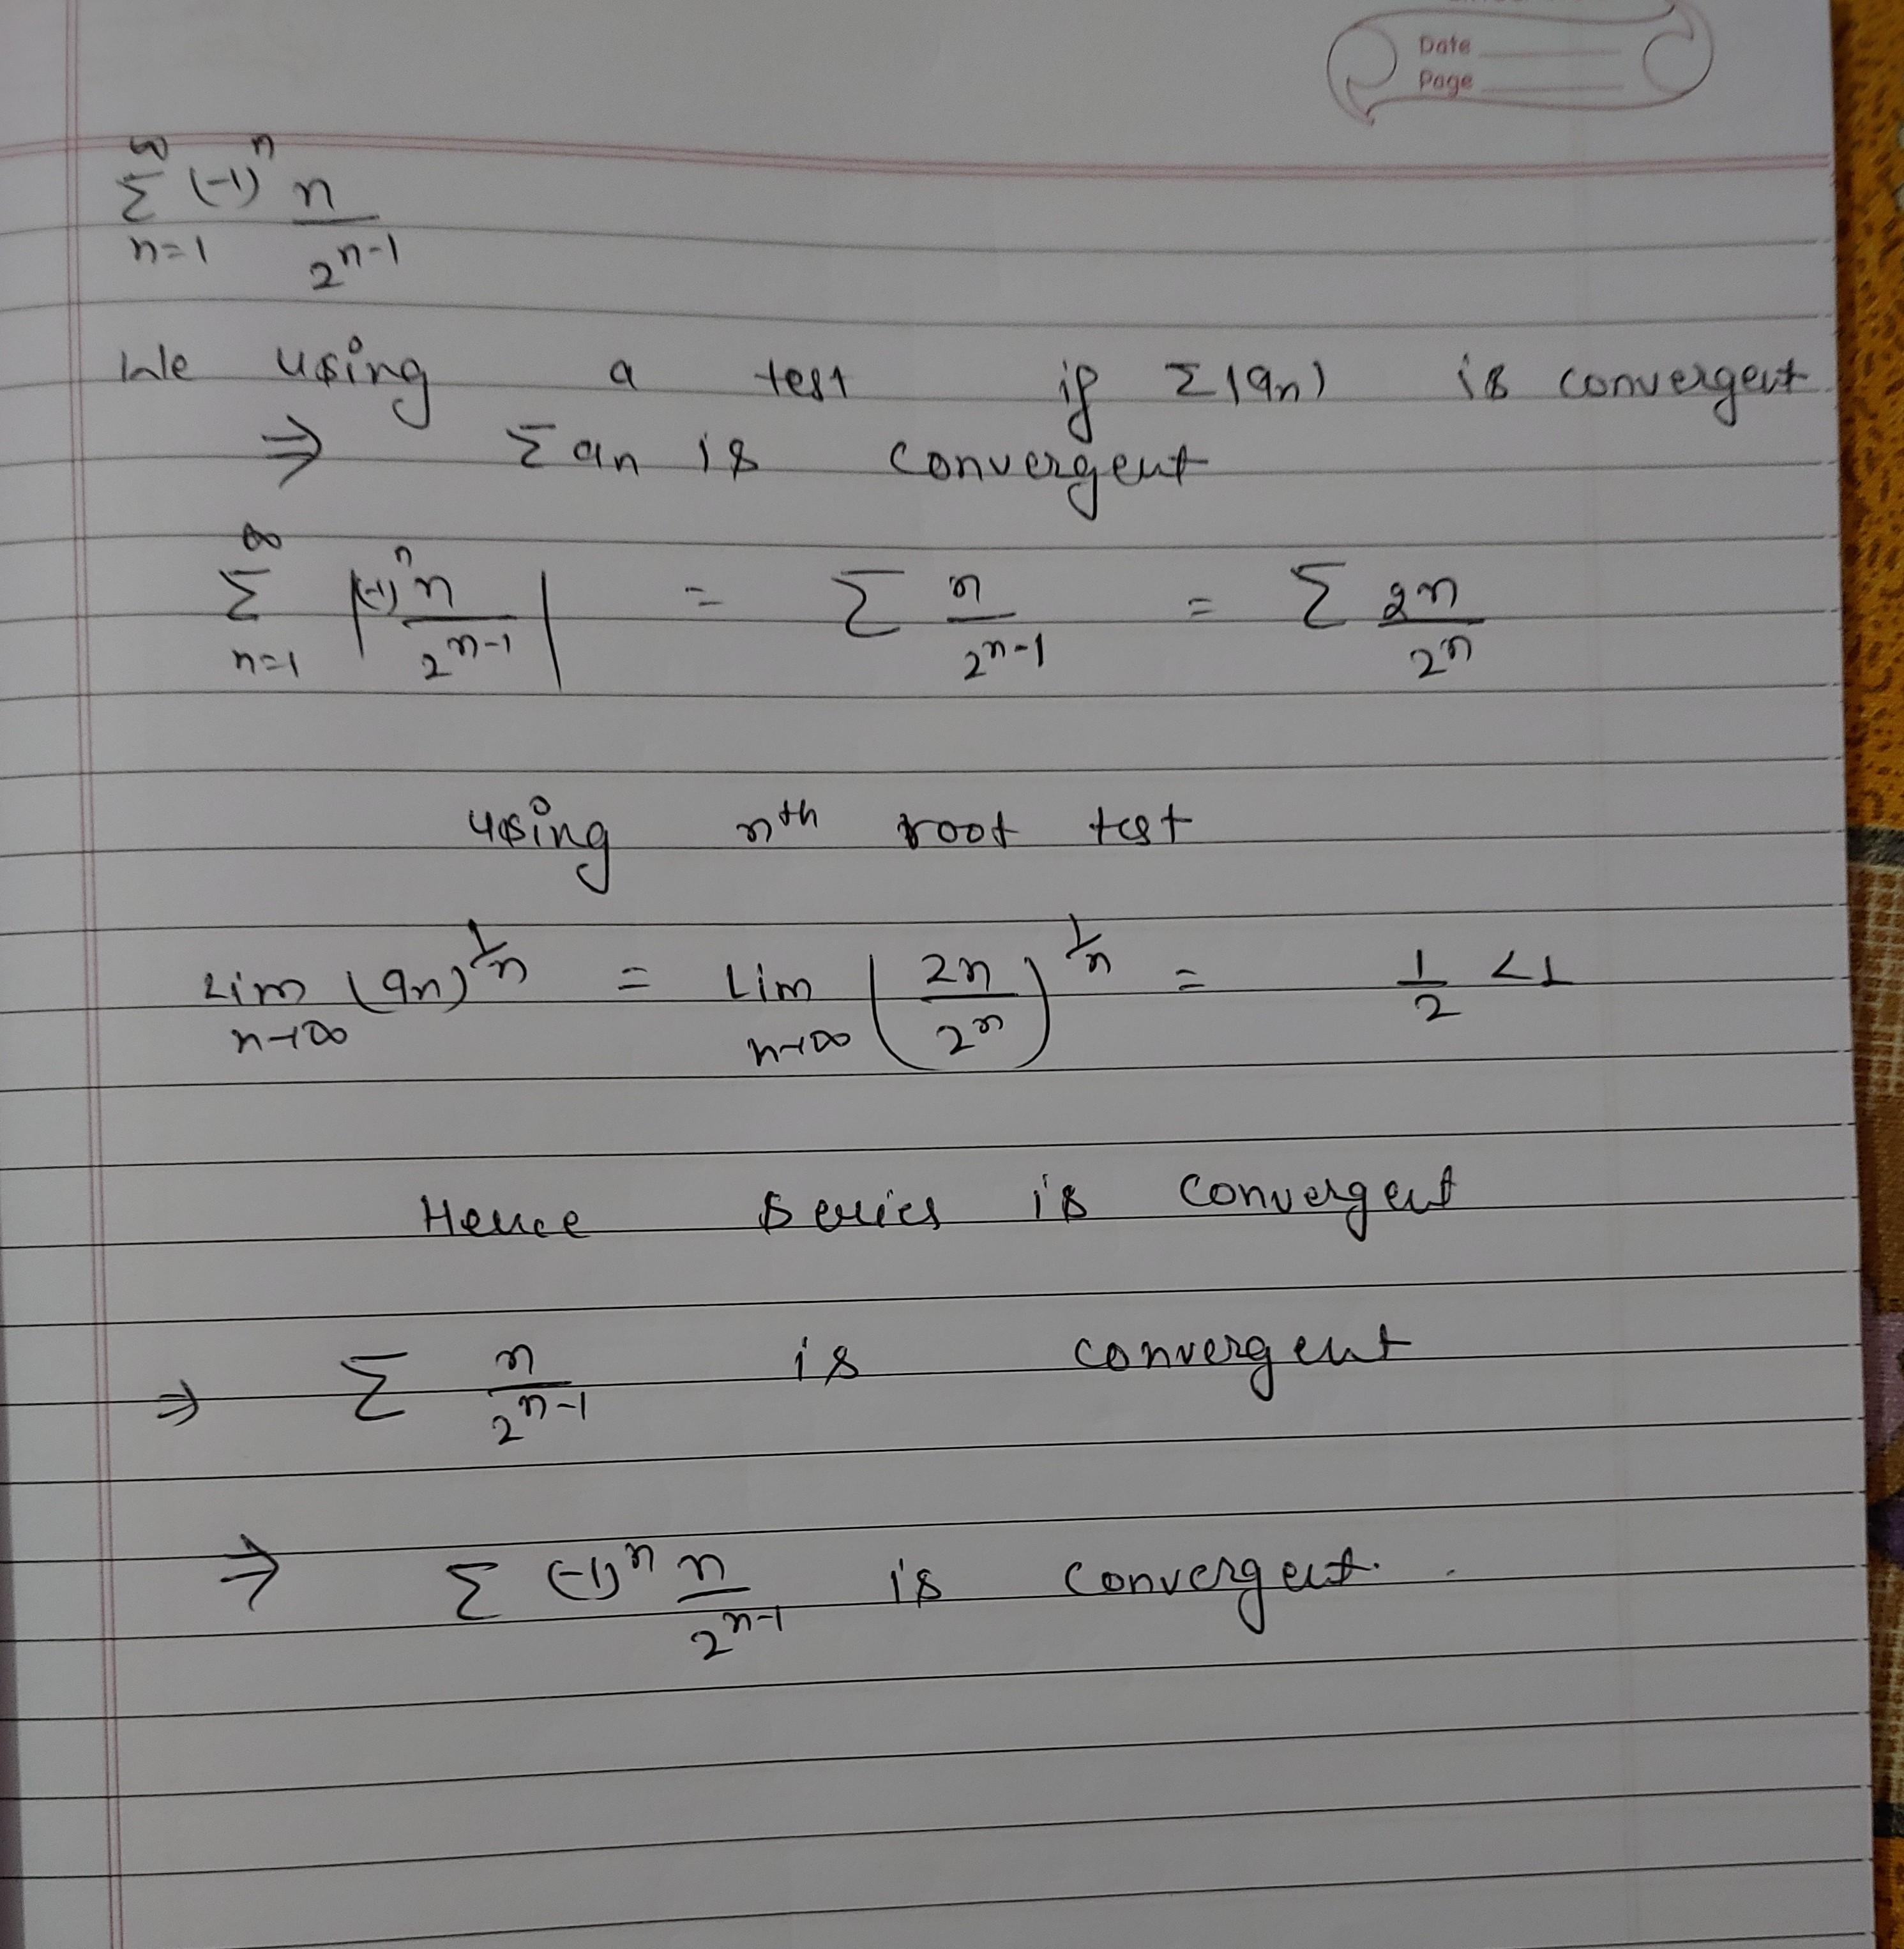 Date
Page
∞ n
Σ (-1) n
n=1 2^{n-1}
We using a test if Σ|an| is convergent
⇒ Σ an is convergent
∞
Σ |(-1)^n n / 2^{n-1}| = Σ n / 2^{n-1} = Σ 2n / 2^n
n=1
using nth root test
Lim (an)^{1/n} = Lim (2n / 2^n)^{1/n} = 1/2 <1
n→∞ n→∞
Hence series is convergent
⇒ Σ n / 2^{n-1} is convergent
⇒ Σ (-1)^n n / 2^{n-1} is convergent.